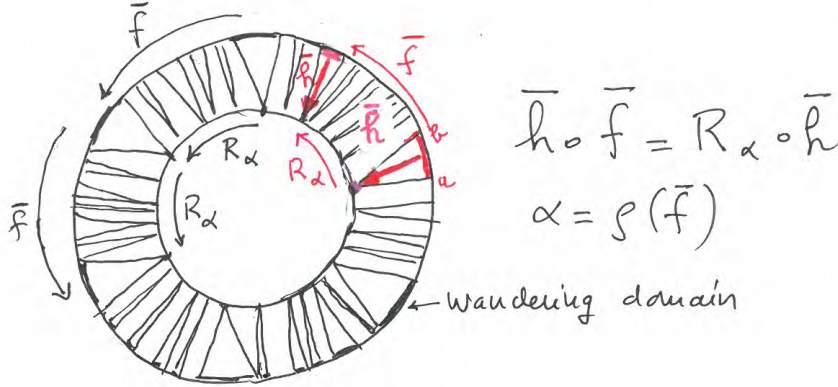 f̄
f̄
h̄
b
h̄
a
R_α
R_α
R_α
f̄
h̄ ∘ f̄ = R_α ∘ h̄
α = ρ(f̄)
← wandering domain